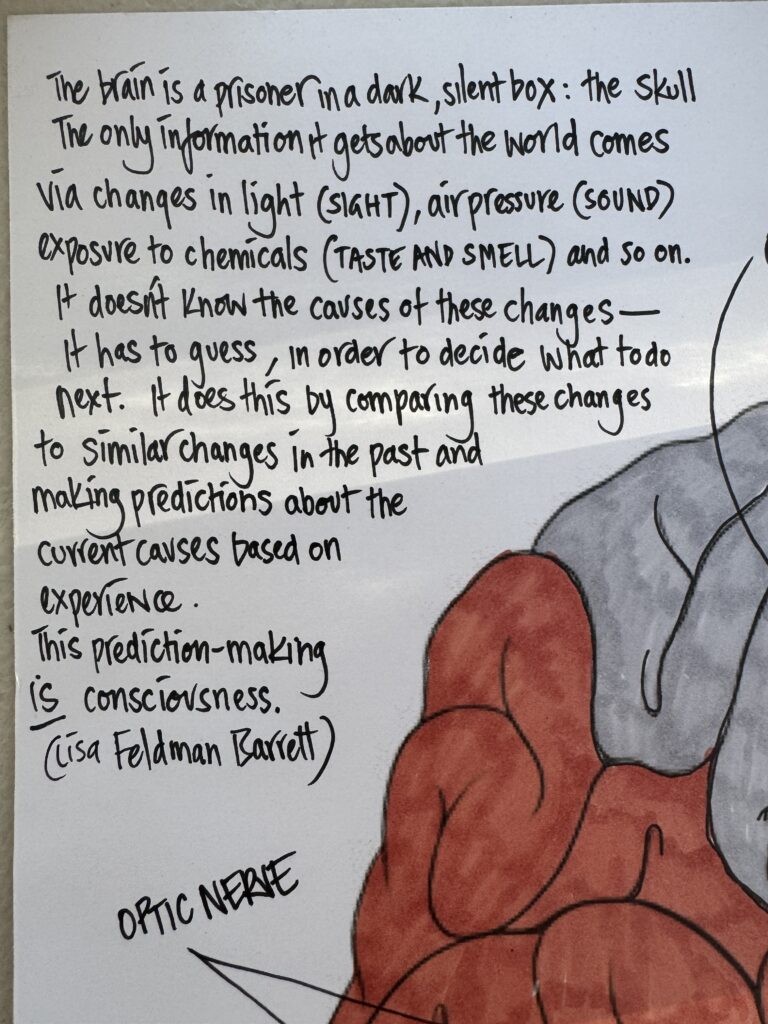 The brain is a prisoner in a dark, silent box: the skull
The only information it gets about the world comes
via changes in light (SIGHT), air pressure (SOUND)
exposure to chemicals (TASTE AND SMELL) and so on.
It doesn't know the causes of these changes —
It has to guess, in order to decide what to do
next. It does this by comparing these changes
to similar changes in the past and
making predictions about the
current causes based on
experience.
This prediction-making
is consciousness.
(Lisa Feldman Barrett)
OPTIC NERVE